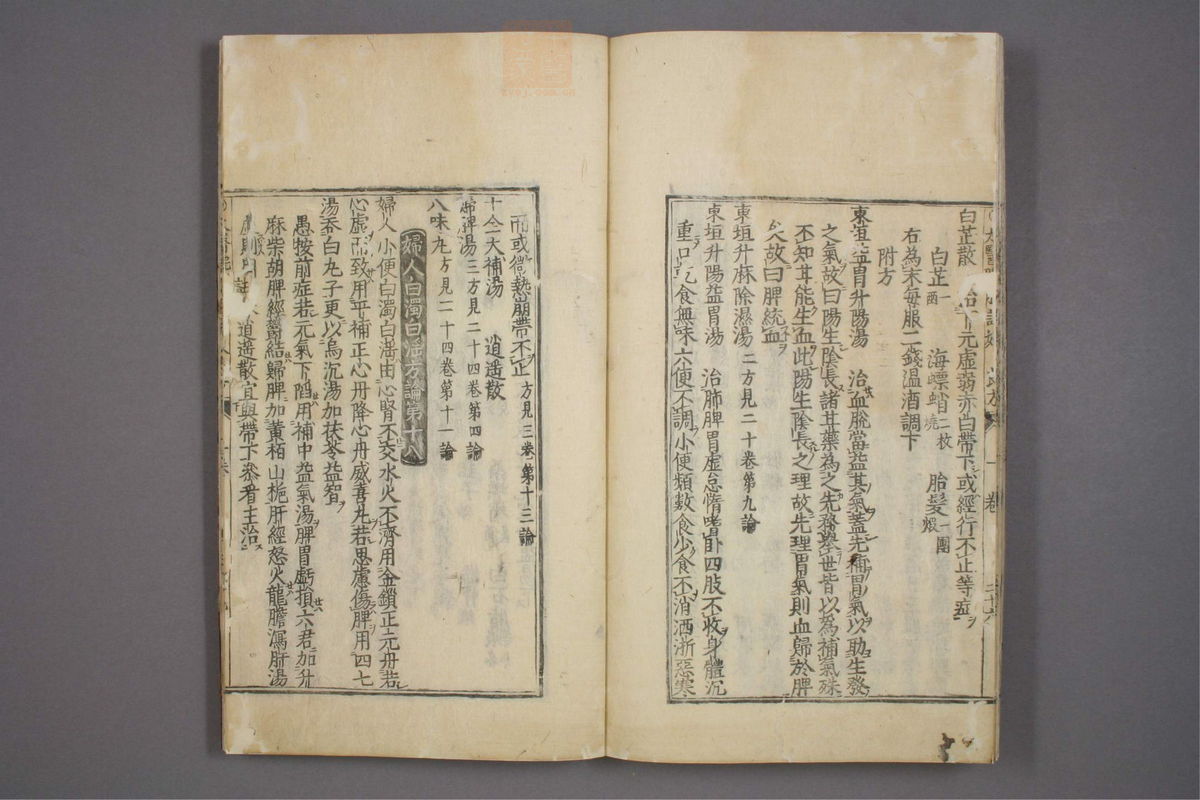 白芷散 治下元虛弱赤白帶下或經行不止等症
白芷一兩 海螵蛸二枚燒 胎髮一團煅
右為末每服二錢温酒調下
附方
東垣益胃升陽湯 治血脫當益其氣蓋先補胃氣以助生發
之氣故曰陽生陰長諸甘藥為之先務舉世皆以為補氣殊
不知其能生血此陽生陰長之理故先理胃氣則血歸於脾
矣故曰脾統血
東垣升麻除濕湯 二方見二十卷第九論
東垣升陽益胃湯 治肺脾胃虛怠惰嗜卧四肢不收身體沉
重口乾食無味六便不調小便頻數食少食不消洒淅惡寒
而或微熱崩帶不止 方見三卷第十三論
十全大補湯 逍遥散
歸脾湯 三方見二十四卷第四論
八味丸 方見二十四卷第十一論
婦人白濁白淫方論第十八
婦人小便白濁白淫由心腎不交水火不濟用金鎖正元丹若
心虛而致用平補正心丹降心丹威喜丸若思慮傷脾用四七
湯吞白丸子更以烏沉湯加茯苓益智
愚按前症若元氣下陷用補中益氣湯脾胃虧損六君加升
麻柴胡脾經鬱結歸脾加黄柏山梔肝經怒火龍膽瀉肝湯
虛則用 逍遥散宜與帶下參看主治